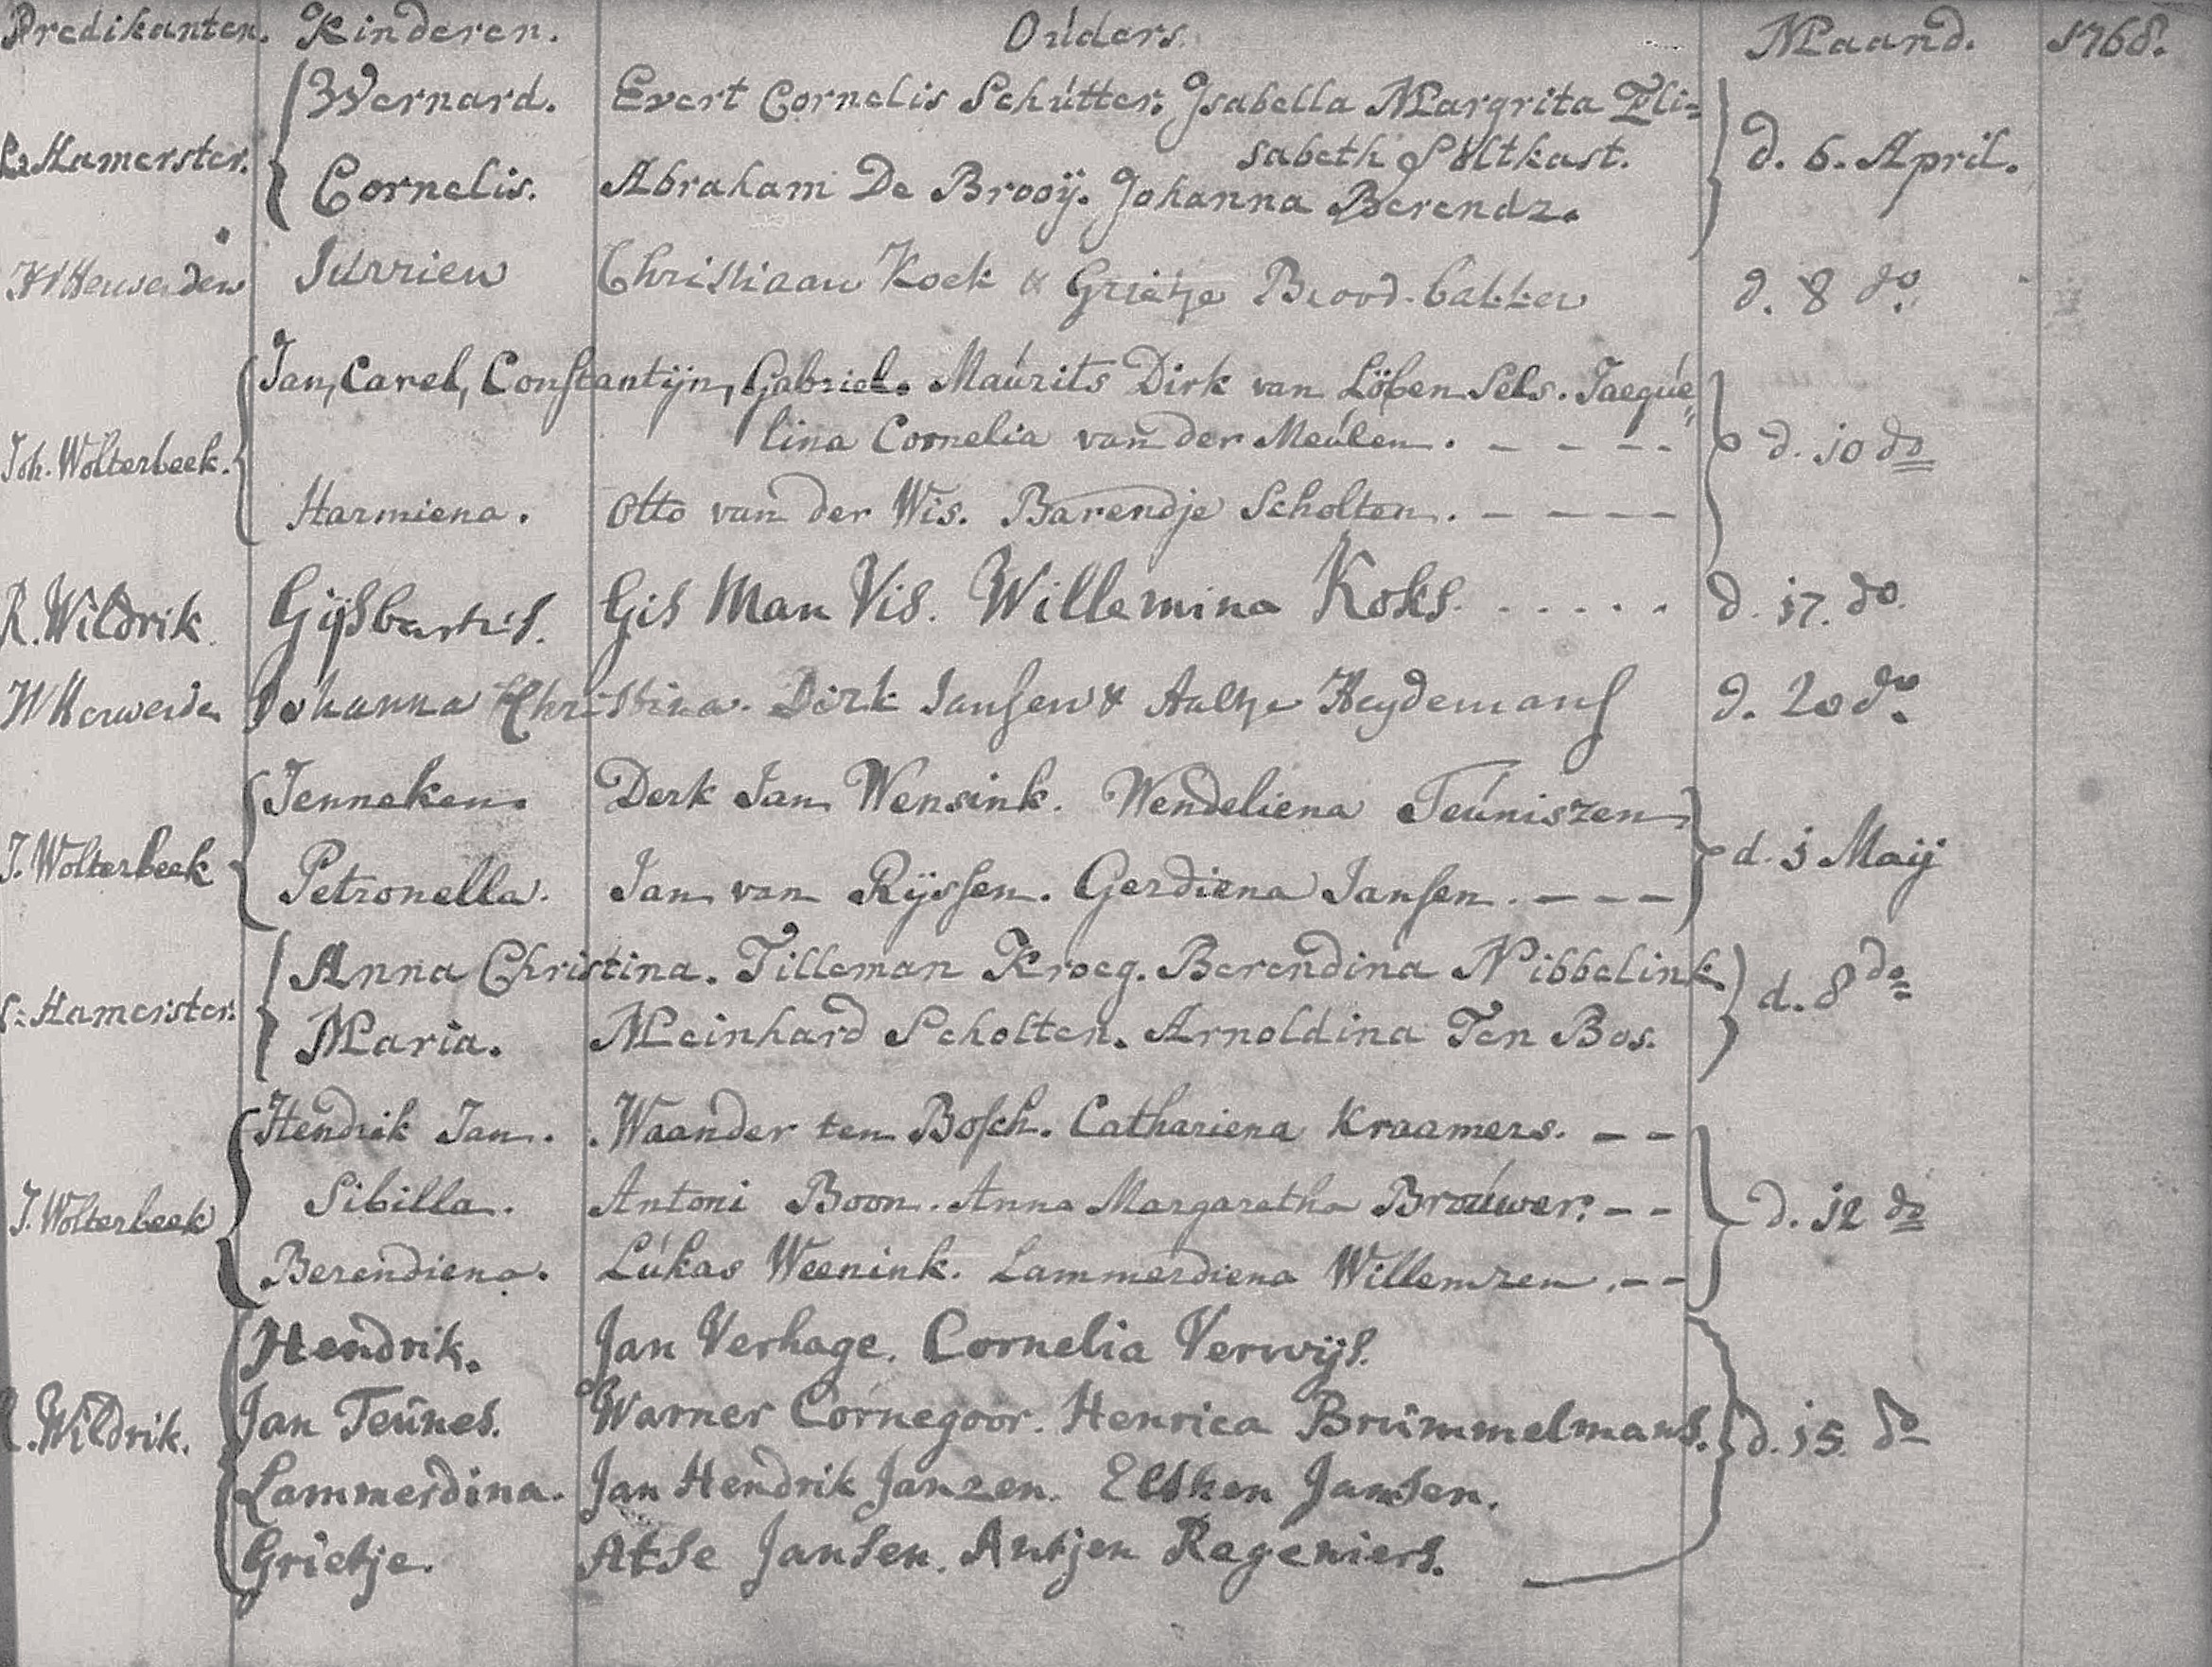 Predikanten. Kinderen. Ouders. Maand. 1768.
Wernard. Evert Cornelis Schútter. Isabella Margrita Eli=
sabeth Póltkast.
Hamerster. Cornelis. Abraham De Brooÿ. Johanna Berendz. d. 6. April.
Jurrien Christiaan Kock & Grietje Brood-bakker d. 8 do.
Jan, Carel, Constantijn, Gabriel. Maúrits Dirk van Löben Sels. Jaequé„
lina Cornelia van der Meúlen. - - - -
Joh. Wolterbeek. d. 10 do
Harmiena. Otto van der Wis. Barendje Scholten. - - - -
R. Wildrik. Gijsbartus. Gis Man Vis. Willemina Koks. . . . . . d. 17. do.
W Herwerden Johanna Christina. Dirk Jansen & Aaltje Heydemans d. 20 do.
Jenneken. Derk Jan Wensink. Wendeliena Teúniszen
J. Wolterbeek d. 1 Maij
Petronella. Jan van Rijssen. Gerdiena Jansen. - - -
Anna Christina. Tilleman Kroeg. Berendina Nibbelink
Hamerster. d. 8 do
Maria. Meinhard Scholten. Arnoldina Ten Bos.
Hendrik Jan. Waander ten Bosch. Cathariena Kraamers. - -
J. Wolterbeek Sibilla. Antoni Boon. Anna Margaretha Broúwer. - - d. 12 do
Berendiena. Lúkas Weenink. Lammerdiena Willemzen. - -
Hendrik. Jan Verhage. Cornelia Verwijs.
R. Wildrik. Jan Teunes. Warner Cornegoor. Henrica Brummelmans. d. 15. do
Lammerdina. Jan Hendrik Janzen. Elsken Jansen.
Grietje. Atse Jansen. Antjen Regeniers.